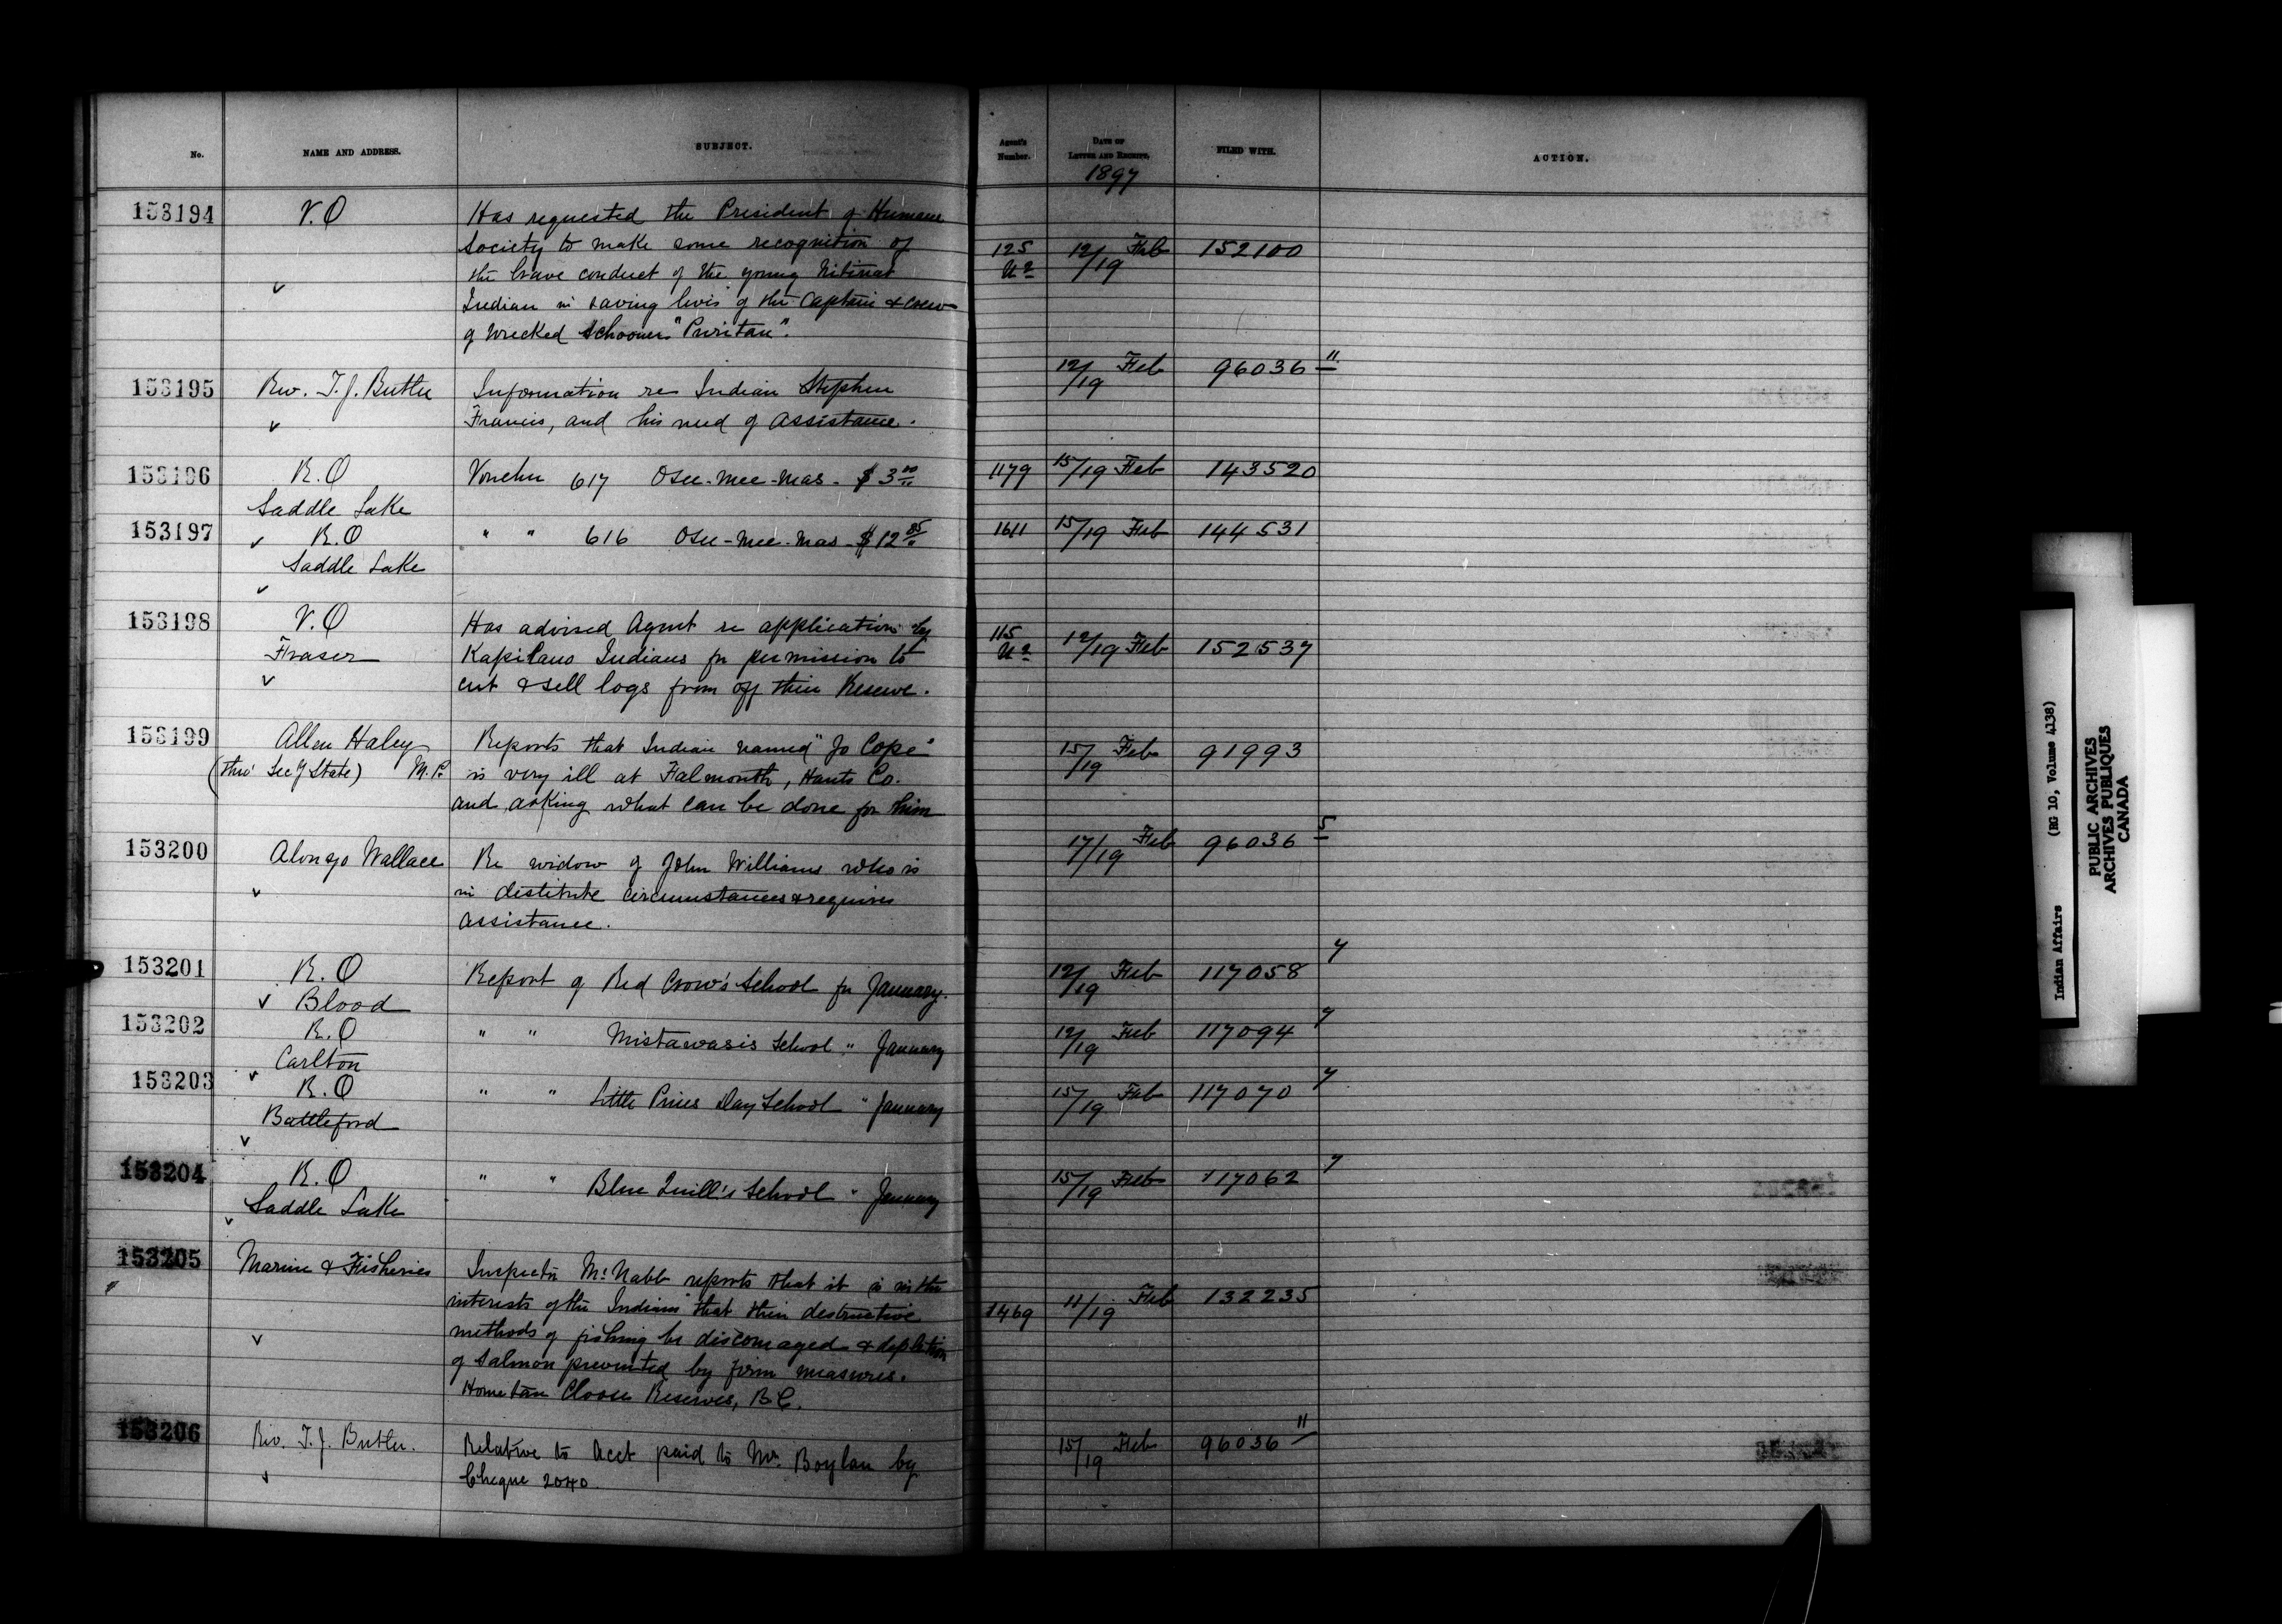 No. NAME AND ADDRESS. SUBJECT. Agent's Number. DATE OF LETTER AND RECEIPT. FILED WITH. ACTION.
1897
153194 V.O Has requested the President of Humane
Society to make some recognition of 125 12/19 Feb 152100
the brave conduct of the young Nitinat
Indian in saving lives of the Captain & crew
of wrecked Schooner "Puritan".
153195 Rev. T.J. Butler Information re Indian Stephen 12/19 Feb 96036 11
Francis, and his need of assistance.
153196 R.O Voucher 617 Osee-mee-mas - $3 00 1179 15/19 Feb 143520
Saddle Lake
153197 R.O " " 616 Osee-mee-mas - $12 85 1611 15/19 Feb 144531
Saddle Lake
153198 V.O Has advised Agent re application by 115 12/19 Feb 152537
Fraser Kapilano Indians for permission to
cut & sell logs from off their Reserve.
153199 Allen Haley Reports that Indian named "Jo Cope" 15/19 Feb 91993
(thro' Secy State) M.P. is very ill at Falmouth, Hants Co.
and asking what can be done for him
153200 Alonzo Wallace Re widow of John Williams who is 17/19 Feb 96036 5
in destitute circumstances & requires
assistance.
153201 R.O Report of Red Crow's School for January. 12/19 Feb 117058 7
Blood
153202 R.O " " Mistawasis School " January 12/19 Feb 117094 7
Carlton
153203 R.O " " Little Pines Day School " January 15/19 Feb 117070 7
Battleford
153204 R.O " " Blue Quill's School " January 15/19 Feb 117062 7
Saddle Lake
153205 Marine & Fisheries Inspector McNabb reports that it is in the
interests of the Indians that their destructive 1469 11/19 Feb 132235
methods of fishing be discouraged & depletion
of Salmon prevented by firm measures.
Clooose Reserves, B.C.
153206 Rev. T.J. Butler. Relative to Acct paid to Mr. Boylan by 15/19 Feb 96036 11
Cheque 2040.
Indian Affairs (RG 10, Volume 4138)
PUBLIC ARCHIVES
ARCHIVES PUBLIQUES
CANADA